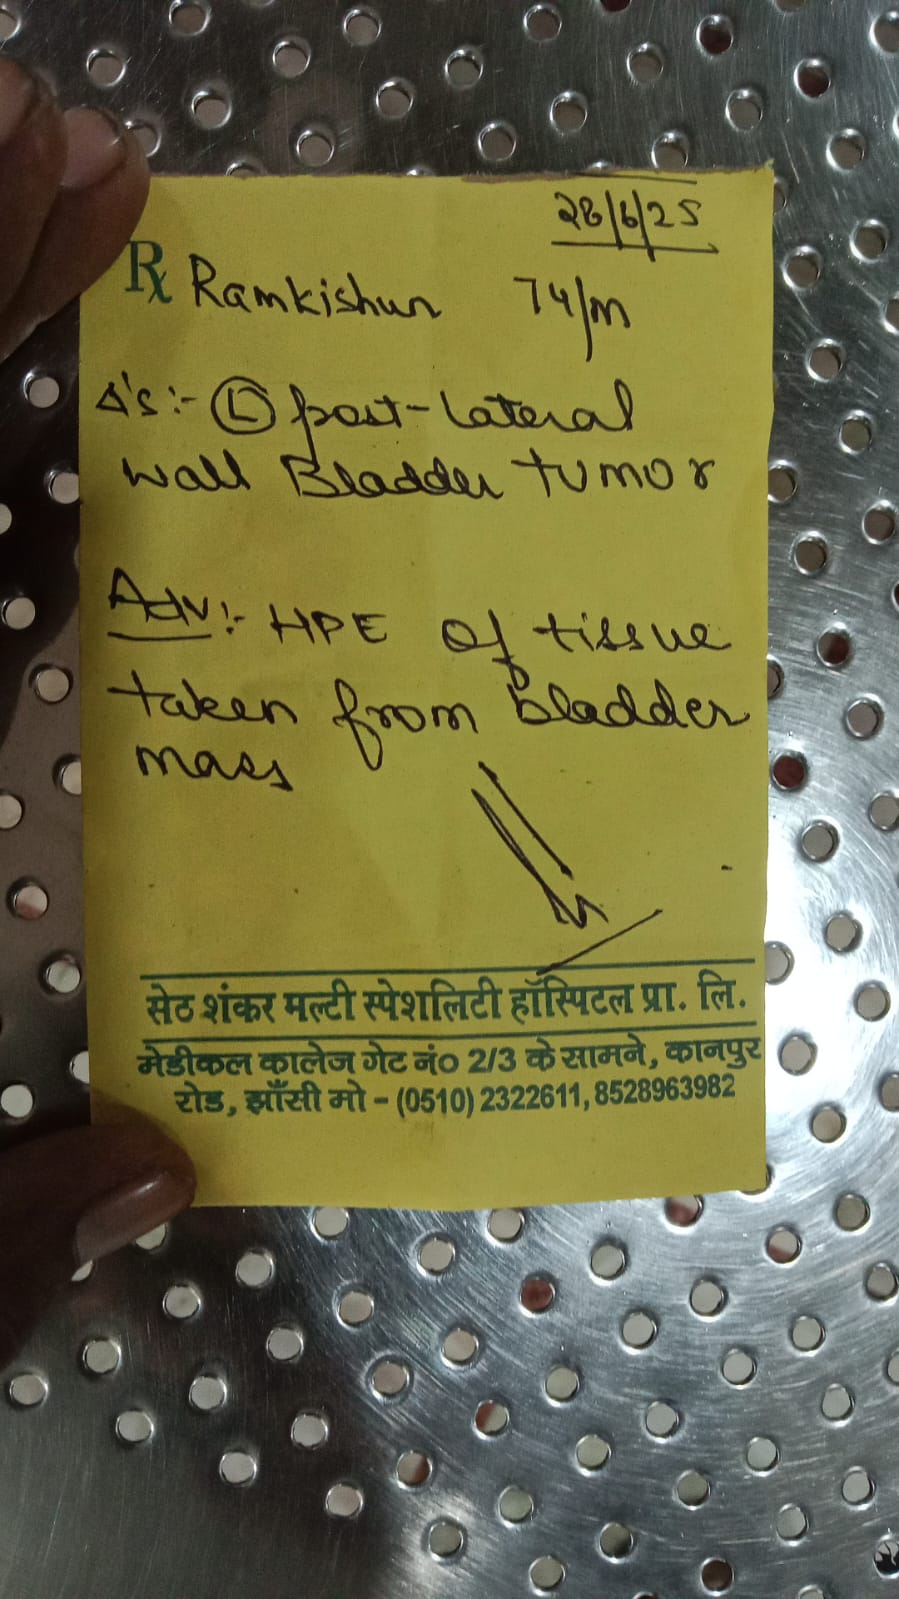 28/6/25
Rx Ramkishun 74/m
Δ's:- Ⓛ post-lateral
wall Bladder tumor
Adv:- HPE of tissue
taken from bladder
mass
सेठ शंकर मल्टी स्पेशलिटी हॉस्पिटल प्रा. लि.
मेडीकल कालेज गेट नं० 2/3 के सामने, कानपुर
रोड, झाँसी मो - (0510) 2322611, 8528963982